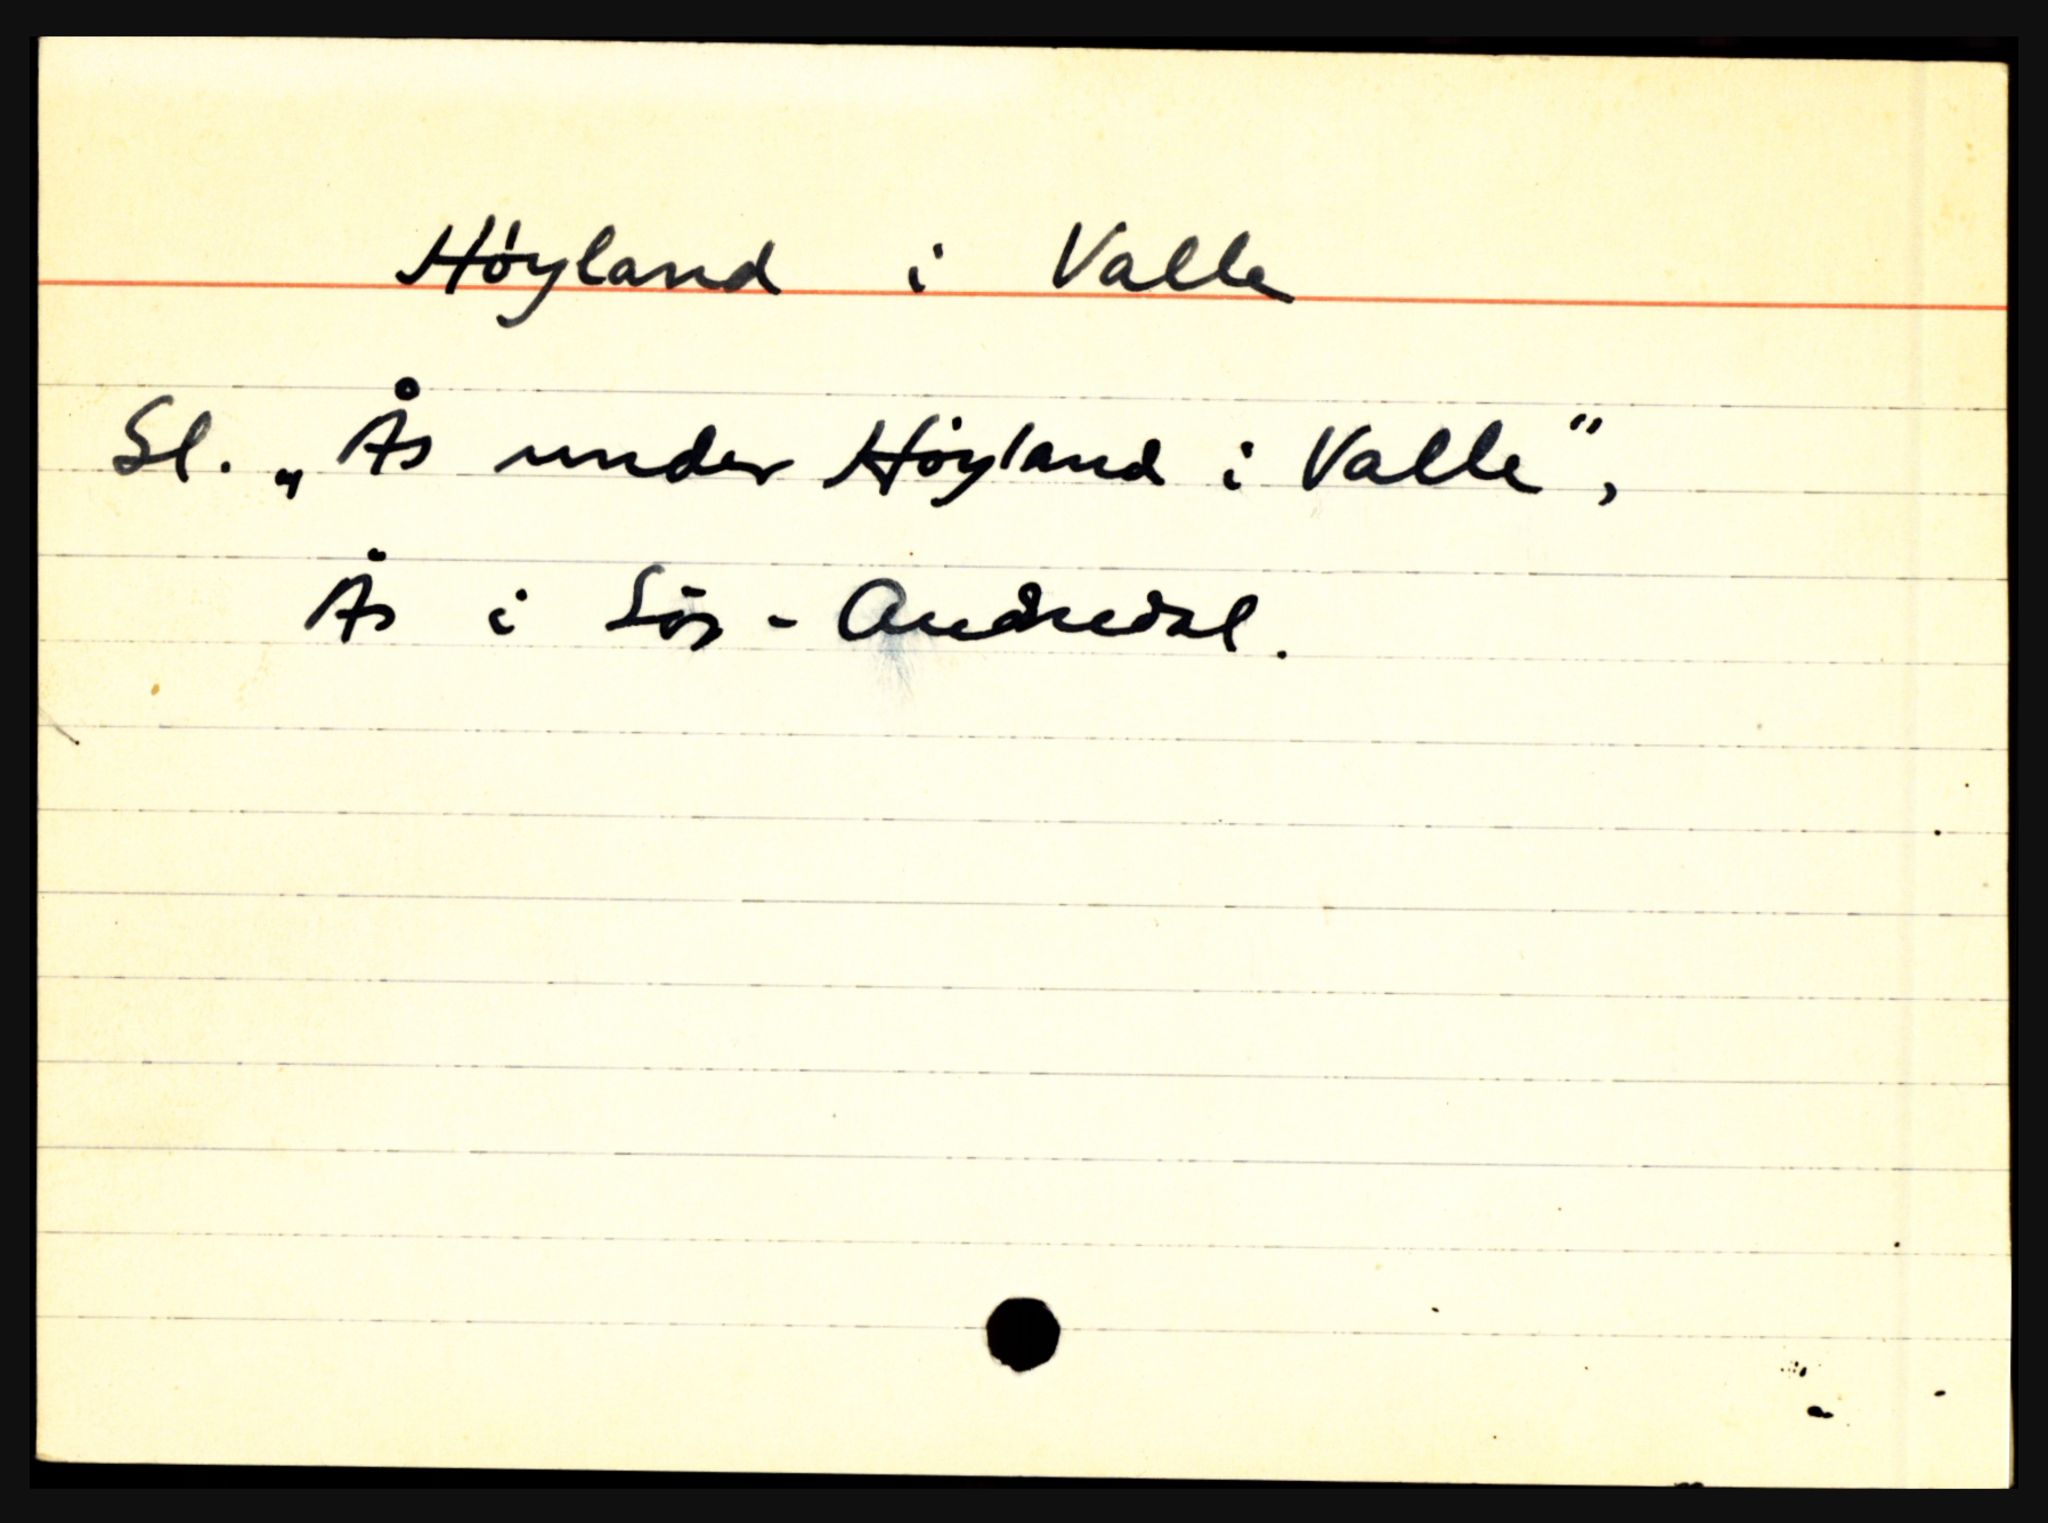 Höyland i Valle
Sl. „Ås under Höyland i Valle",
Ås i Sör-Audnedal.